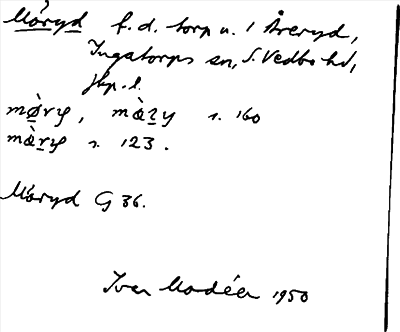 Möryd f. d. torp u. 1 Åreryd,
Ingatorps sn, S. Vedbo hd,
jkp. l.
mø̀ry, mà̱ry s. 160
mà̱ry s. 123.
Möryd G 36.
Ivar Modéer 1950